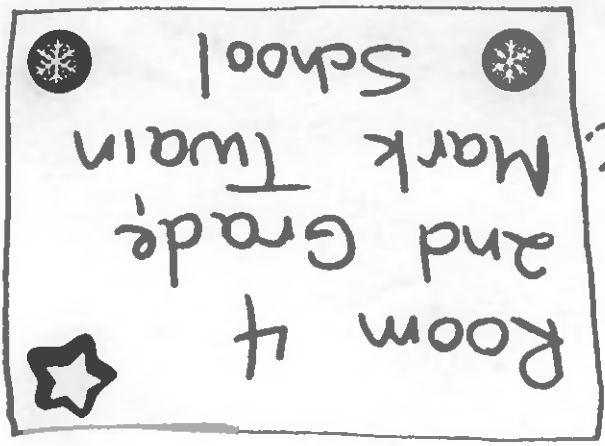 Room 4
2nd Grade
Mark Twain
School